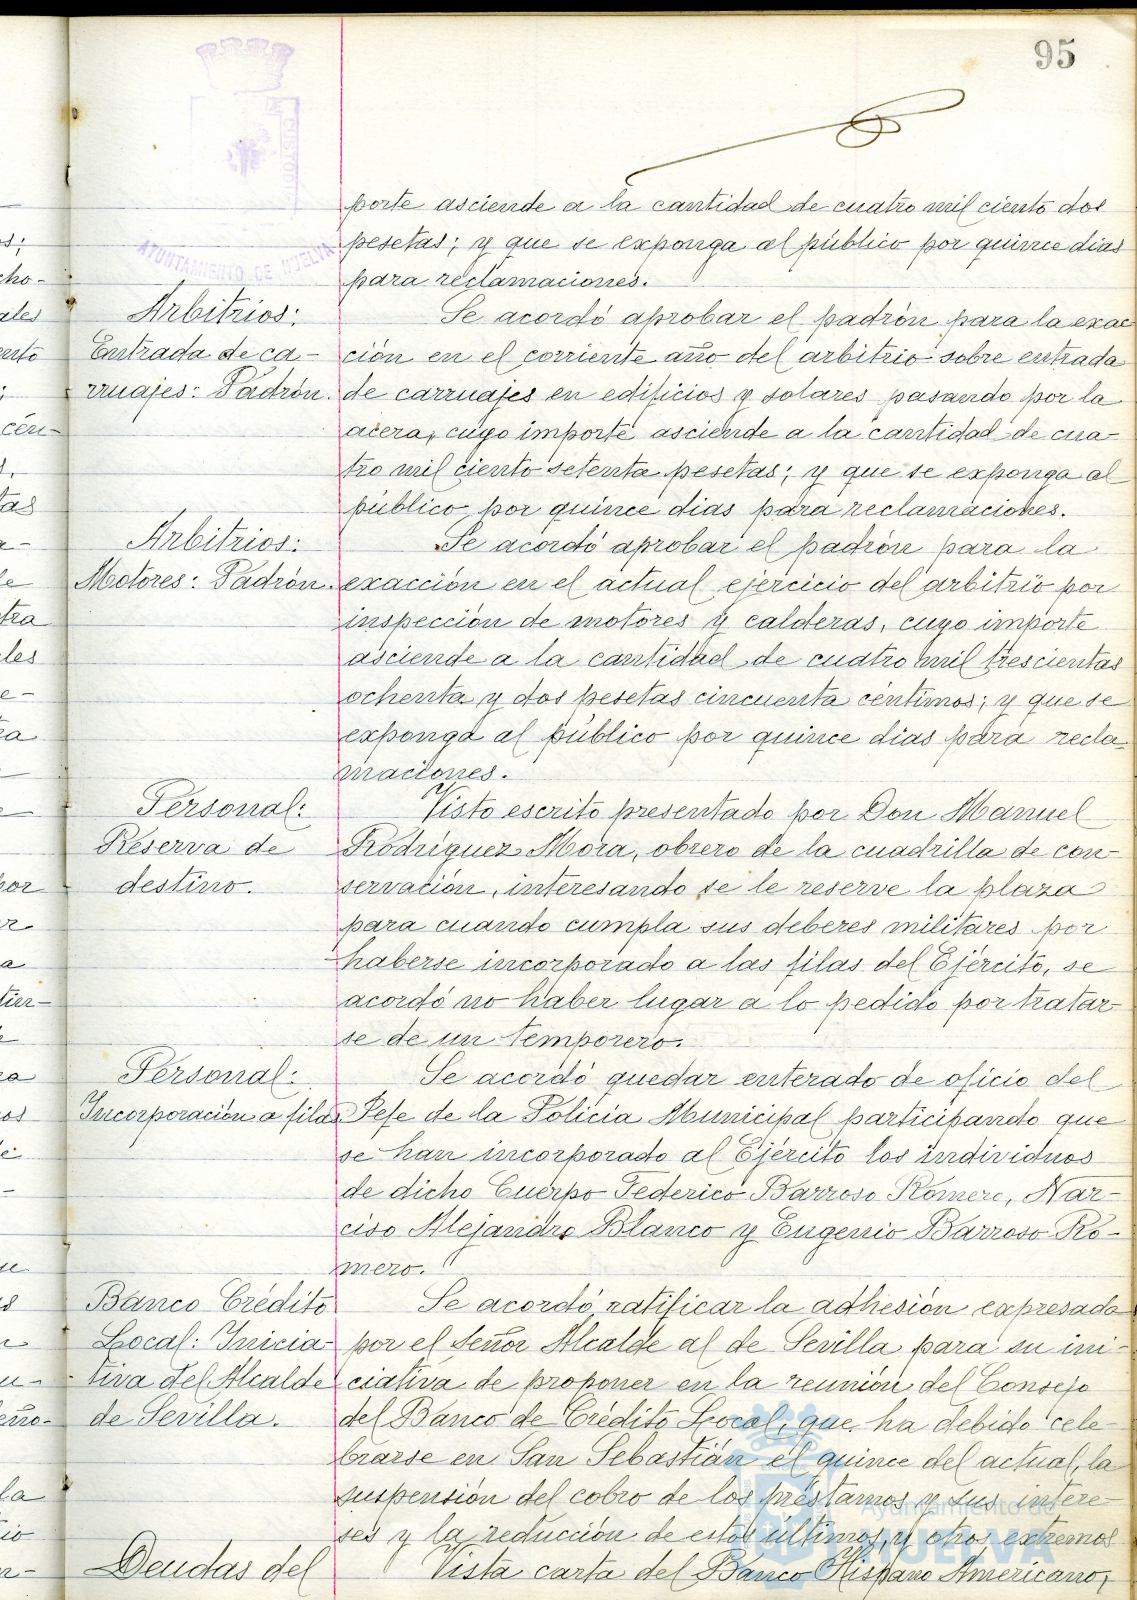 95
porte asciende a la cantidad de cuatro mil ciento dos
pesetas; y que se exponga al público por quince dias
AYUNTAMIENTO DE HUELVA
para reclamaciones.
Arbitrios:
Entrada de ca-
rruajes: Padrón.
Se acordó aprobar el padrón para la exac-
ción en el corriente año del arbitrio sobre entrada
de carruajes en edificios y solares pasando por la
acera, cuyo importe asciende a la cantidad de cua-
tro mil ciento setenta pesetas; y que se exponga al
público por quince dias para reclamaciones.
Arbitrios:
Motores: Padrón.
Se acordó aprobar el padrón para la
exacción en el actual ejercicio del arbitrio por
inspección de motores y calderas, cuyo importe
asciende a la cantidad de cuatro mil trescientas
ochenta y dos pesetas cincuenta céntimos; y que se
exponga al público por quince dias para recla-
maciones.
Personal:
Reserva de
destino.
Visto escrito presentado por Don Manuel
Rodríguez Mora, obrero de la cuadrilla de con-
servación, interesando se le reserve la plaza
para cuando cumpla sus deberes militares por
haberse incorporado a las filas del Ejército, se
acordó no haber lugar a lo pedido por tratar-
se de un temporero.
Personal:
Incorporación a filas
Se acordó quedar enterado de oficio del
Jefe de la Policia Municipal participando que
se han incorporado al Ejército los individuos
de dicho Cuerpo Federico Barroso Romero, Nar-
ciso Alejandro Blanco y Eugenio Barroso Ro-
mero.
Banco Crédito
Local: Inicia-
tiva del Alcalde
de Sevilla.
Se acordó ratificar la adhesión expresada
por el señor Alcalde al de Sevilla para su ini-
ciativa de proponer en la reunión del Consejo
del Banco de Crédito Local, que ha debido cele-
brarse en San Sebastián el quince del actual, la
suspensión del cobro de los préstamos y sus intere-
ses y la reducción de estos últimos, y otros extremos
Deudas del
Vista carta del Banco Hispano Americano,
Ayuntamiento de
HUELVA